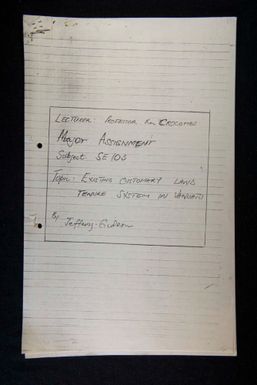 LECTURER: PROFESSOR Ron CROCOMBE
MAJOR ASSIGNMENT
Subject SE 105
Topic: EXISTING CUSTOMARY LAND
TENURE SYSTEM IN VANUATU
By Jeffery